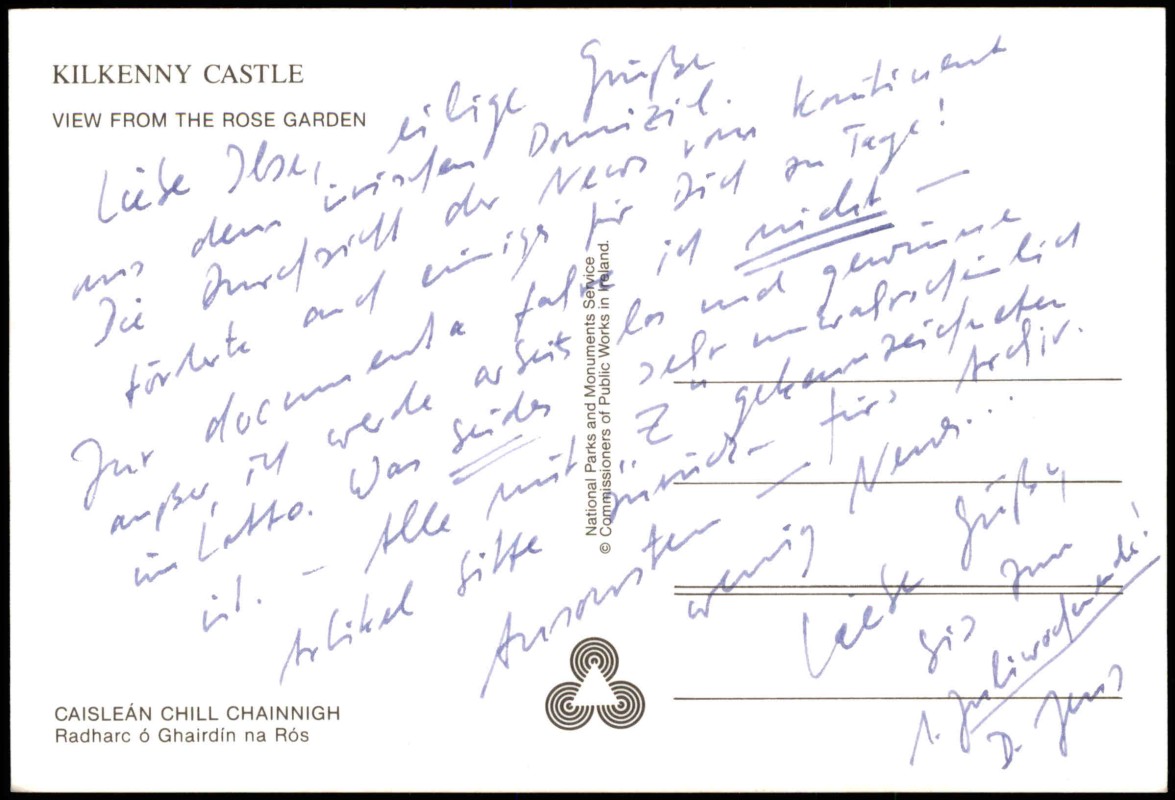 KILKENNY CASTLE
VIEW FROM THE ROSE GARDEN
Liebe Ilse, eilige Grüße
aus dem irischen Domizil.
Die Durchsicht der News vom Kontinent
förderte auch einiges für Dich zu Tage!
Zur documenta fahre ich nicht –
außer, ich werde arbeitslos und gewinne
im Lotto. Was beides sehr unwahrscheinlich
ist. – Alle mit "Z" gekennzeichneten
Artikel bitte zurück – fürs Archiv.
Ansonsten – wenig News...
Liebe Grüße,
bis zum
1. Juliwochenende!
D. Jens
National Parks and Monuments Service
© Commissioners of Public Works in Ireland.
CAISLEÁN CHILL CHAINNIGH
Radharc ó Ghairdín na Rós